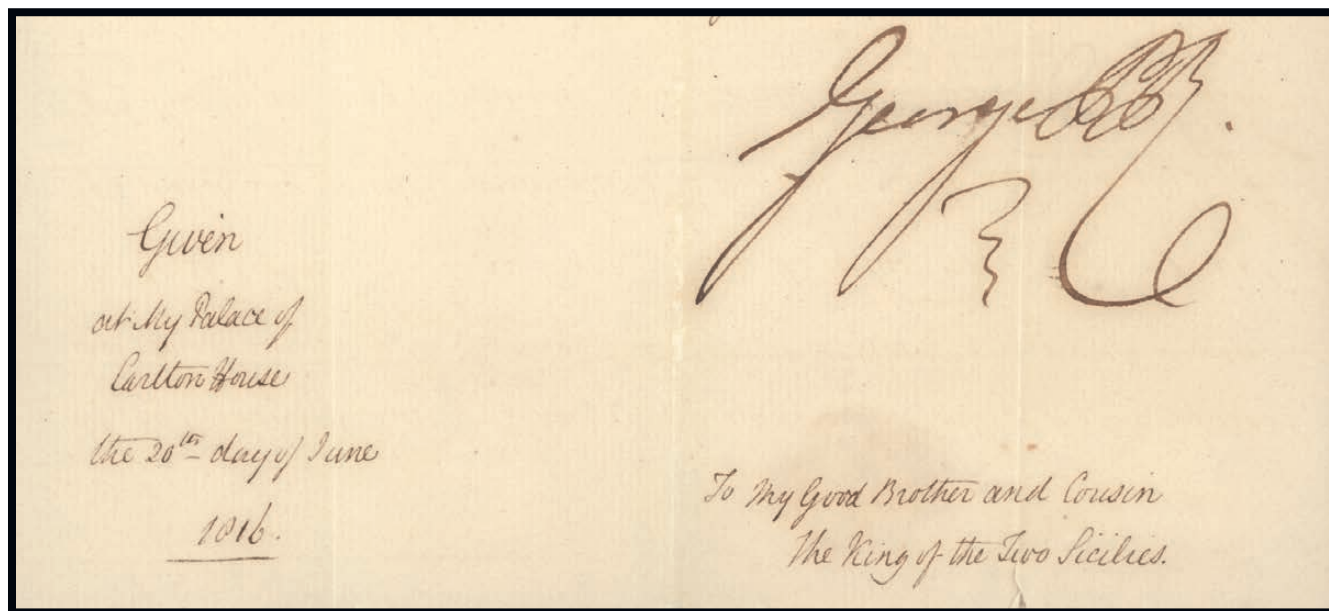 George P R
Given
at My Palace of
Carlton House
the 20th day of June
1816.
To My Good Brother and Cousin
The King of the Two Sicilies.